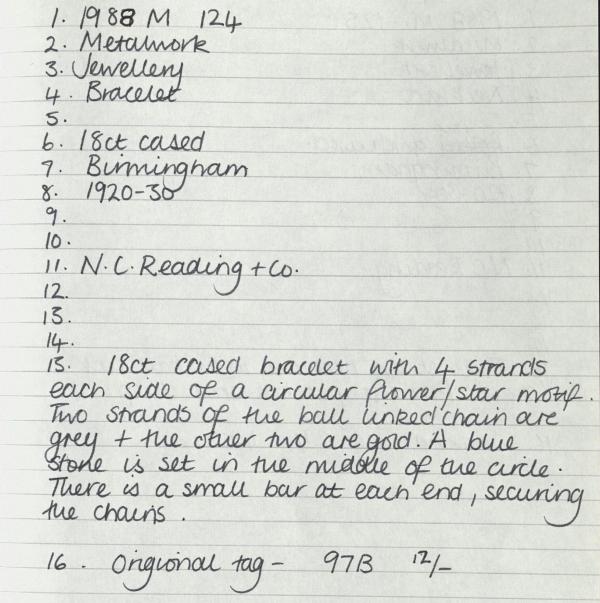 1. 1988 M 124
2. Metalwork
3. Jewellery
4. Bracelet
5.
6. 18ct cased
7. Birmingham
8. 1920-30
9.
10.
11. N.C. Reading + Co.
12.
13.
14.
15. 18ct cased bracelet with 4 strands
each side of a circular flower/star motif.
Two strands of the ball linked chain are
grey + the other two are gold. A blue
stone is set in the middle of the circle.
There is a small bar at each end, securing
the chains.
16. Origional tag - 97B 12/-